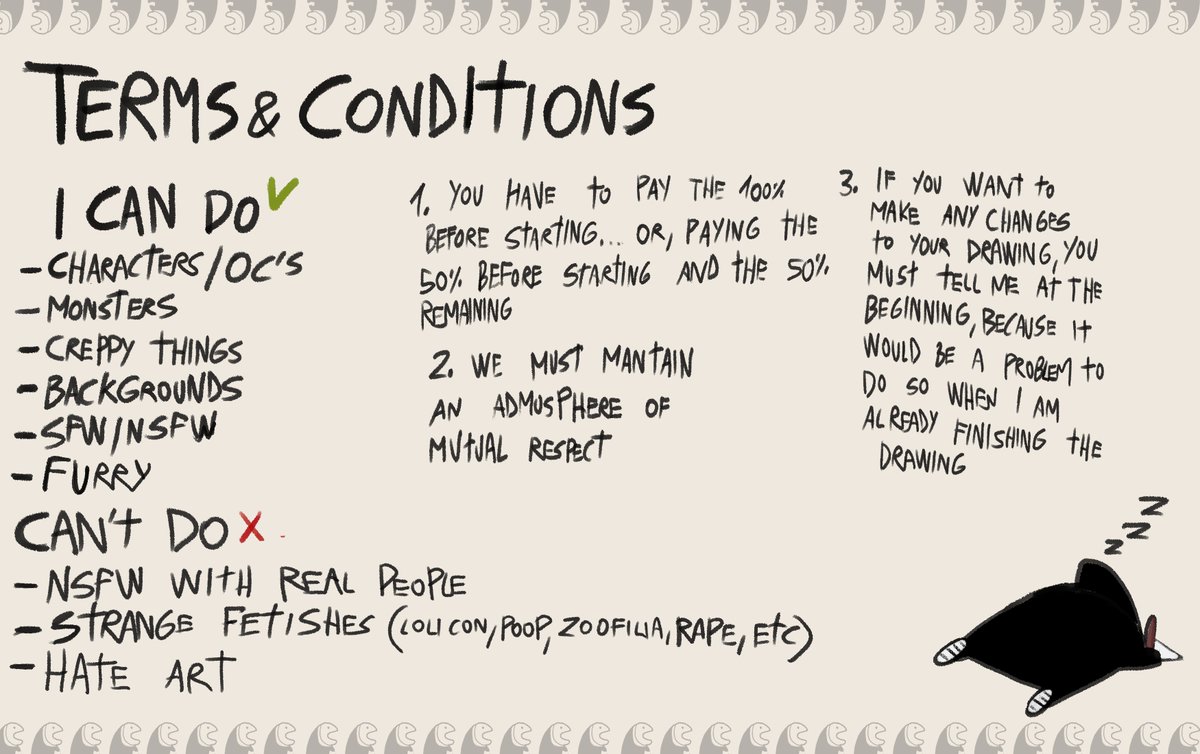 TERMS & CONDITIONS
I CAN DO
- CHARACTERS/OC'S
- MONSTERS
- CREPPY THINGS
- BACKGROUNDS
- SFW/NSFW
- FURRY
CAN'T DO X
- NSFW WITH REAL PEOPLE
- STRANGE FETISHES (LOLI CON, POOP, ZOOFILIA, RAPE, ETC)
- HATE ART
1. YOU HAVE to PAY THE 100%
BEFORE STARTING... OR, PAYING THE
50% BEFORE STARTING AND THE 50%
REMAINING
2. WE MUST MANTAIN
AN ADMOSPHERE OF
MUTUAL RESPECT
3. IF YOU WANT to
MAKE ANY CHANGES
to YOUR DRAWING, YOU
MUST TELL ME AT THE
BEGINNING, BECAUSE IT
WOULD BE A PROBLEM TO
DO SO WHEN I AM
ALREADY FINISHING THE
DRAWING
Z
Z
Z